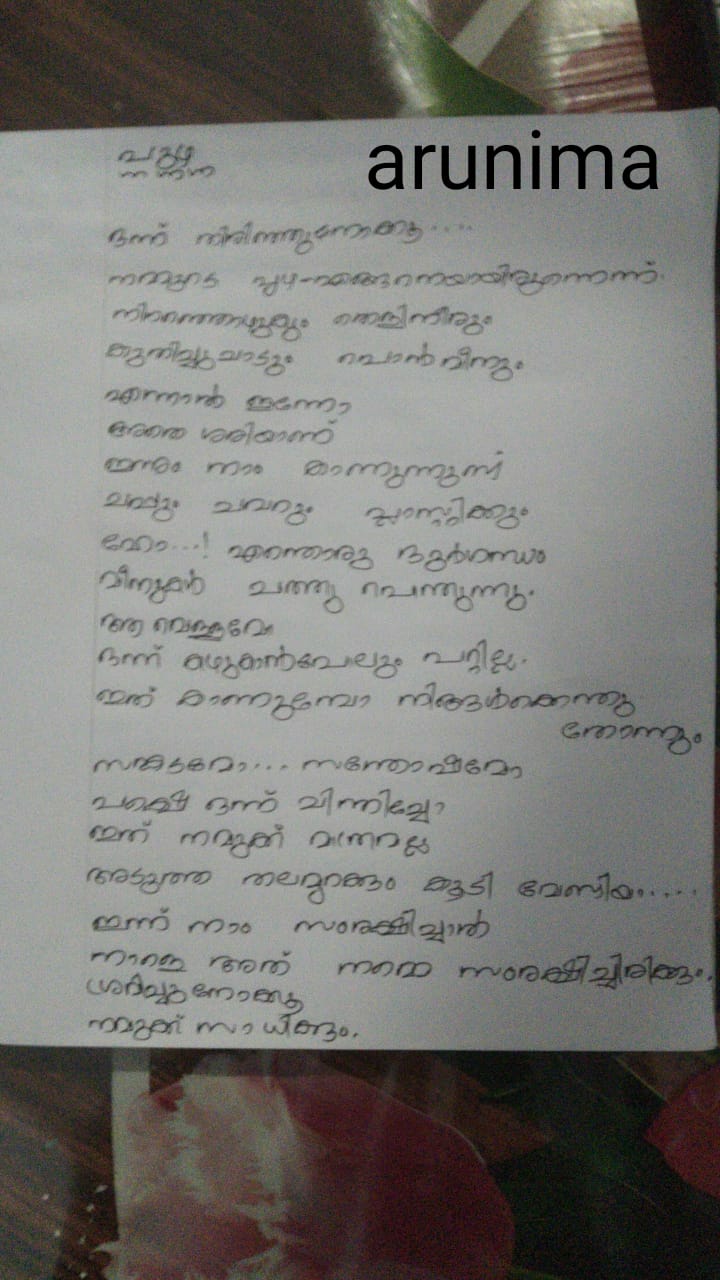 arunima
പുഴ
ഒന്ന് തിരിഞ്ഞുനോക്കൂ....
നമ്മുടെ പുഴ എങ്ങനെയായിരുന്നെന്ന്.
നിറഞ്ഞൊഴുകും തെളിനീരും
കുതിച്ചുചാടും പൊൻമീനും
എന്നാൽ ഇന്നോ
അതെ ശരിയാണ്
ഇന്നും നാം കാണുന്നുണ്ട്
ചപ്പും ചവറും പ്ലാസ്റ്റിക്കും
ഹോ...! എന്തൊരു ദുർഗന്ധം
മീനുകൾ ചത്തു പൊന്തുന്നു.
ആ വെള്ളമോ
ഒന്ന് കഴുകാൻപോലും പറ്റില്ല.
ഇത് കാണുമ്പോ നിങ്ങൾക്കെന്തു
തോന്നും
സങ്കടമോ... സന്തോഷമോ
പക്ഷെ ഒന്ന് ചിന്തിച്ചോ
ഇത് നമുക്ക് മാത്രമല്ല
അടുത്ത തലമുറക്കും കൂടി വേണ്ടിയാ.....
ഇന്ന് നാം സംരക്ഷിച്ചാൽ
നാളെ അത് നമ്മെ സംരക്ഷിച്ചിരിക്കും.
ശ്രമിച്ചുനോക്കൂ
നമുക്ക് സാധിക്കും.